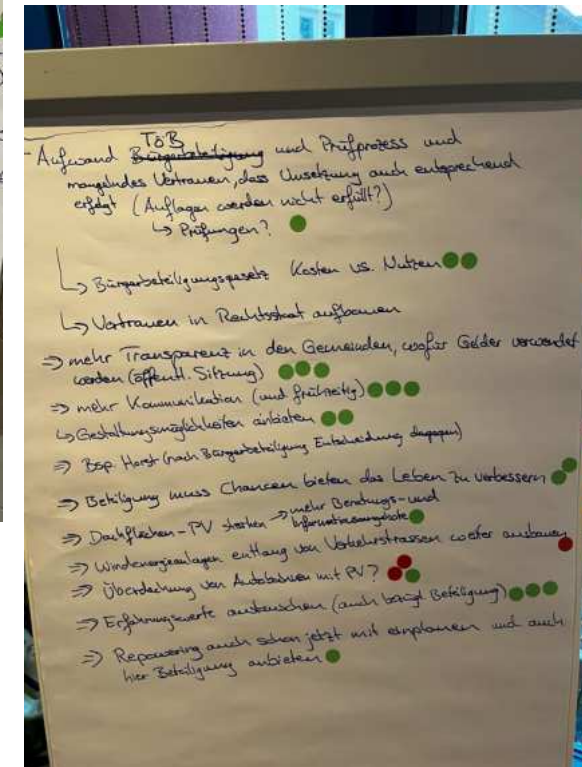 TöB
- Aufwand Bürgerbeteiligung und Prüfprozess und
mangelndes Vertrauen, dass Umsetzung auch entsprechend
erfolgt (Auflagen werden nicht erfüllt?)
↳ Prüfungen?
↳ Bürgerbeteiligungsgesetz Kosten vs. Nutzen
↳ Vertrauen in Rechtsstaat aufbauen
⇒ mehr Transparenz in den Gemeinden, wofür Gelder verwendet
werden (öffentl. Sitzung)
⇒ mehr Kommunikation (und frühzeitig)
↳ Gestaltungsmöglichkeiten anbieten
⇒ Bsp. Horst (nach Bürgerbeteiligung Entscheidung dagegen)
⇒ Beteiligung muss Chancen bieten das Leben zu verbessern
⇒ Dachflächen-PV stärken → mehr Beratungs- und
Informationsangebote
⇒ Windenergieanlagen entlang von Verkehrstrassen weiter ausbauen
⇒ Überdachung von Autobahnen mit PV?
⇒ Erfahrungswerte austauschen (auch bezügl. Beteiligung)
⇒ Repowering auch schon jetzt mit einplanen und auch
hier Beteiligung anbieten